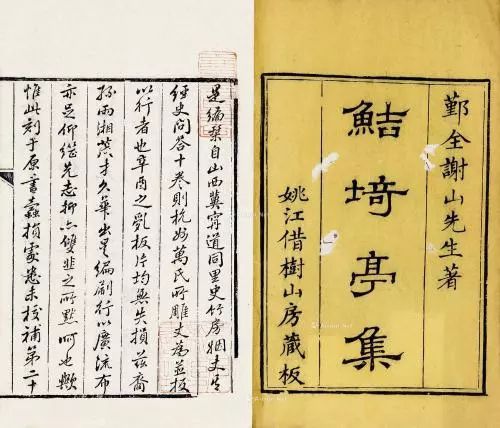 鄞全謝山先生著
鮚埼亭集
姚江借樹山房藏板
是編槧自山西冀寧道同里史竹房姻丈
經史問答十卷則杭州萬氏所雕丈為並板
以行者也辛酉之亂板片均無失損茲裔
孫雨湘茂才久華出是編刷行以廣流布
亦足仰繼先志抑亦雙韭之所默呵也歟
惟此刻于原書蠹損處悉未校補第二十